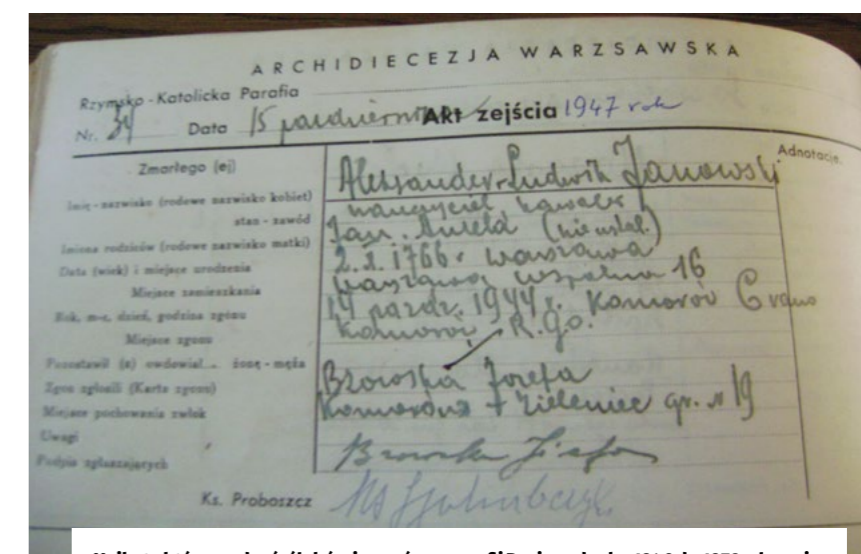 ARCHIDIECEZJA WARZSAWSKA
Rzymsko-Katolicka Parafia
Nr. 34 Data 15 październ Akt zejścia 1947 rok
Adnotacje.
Zmarłego (ej)
Imię - nazwisko (rodowe nazwisko kobiet) Aleksander-Ludwik Janowski
stan - zawód nauczyciel kawaler
Imiona rodziców (rodowe nazwisko matki) Jan. Aniela (nie ustal.)
Data (wiek) i miejsce urodzenia 2.X.1766 r warszawa
Miejsce zamieszkania warszawa wspólna 16
Rok, m-c, dzień, godzina zgonu 14 paźdz. 1944 r. Komorów 6 rano
Miejsce zgonu Komorów R.G.O.
Pozostawił (a) owdowiał... żonę - męża
Zgon zgłosili (Karta zgonu) Józefa
Miejsce pochowania zwłok + Zieleniec gr. N 19
Uwagi
Podpis zgłaszających
Ks. Proboszcz